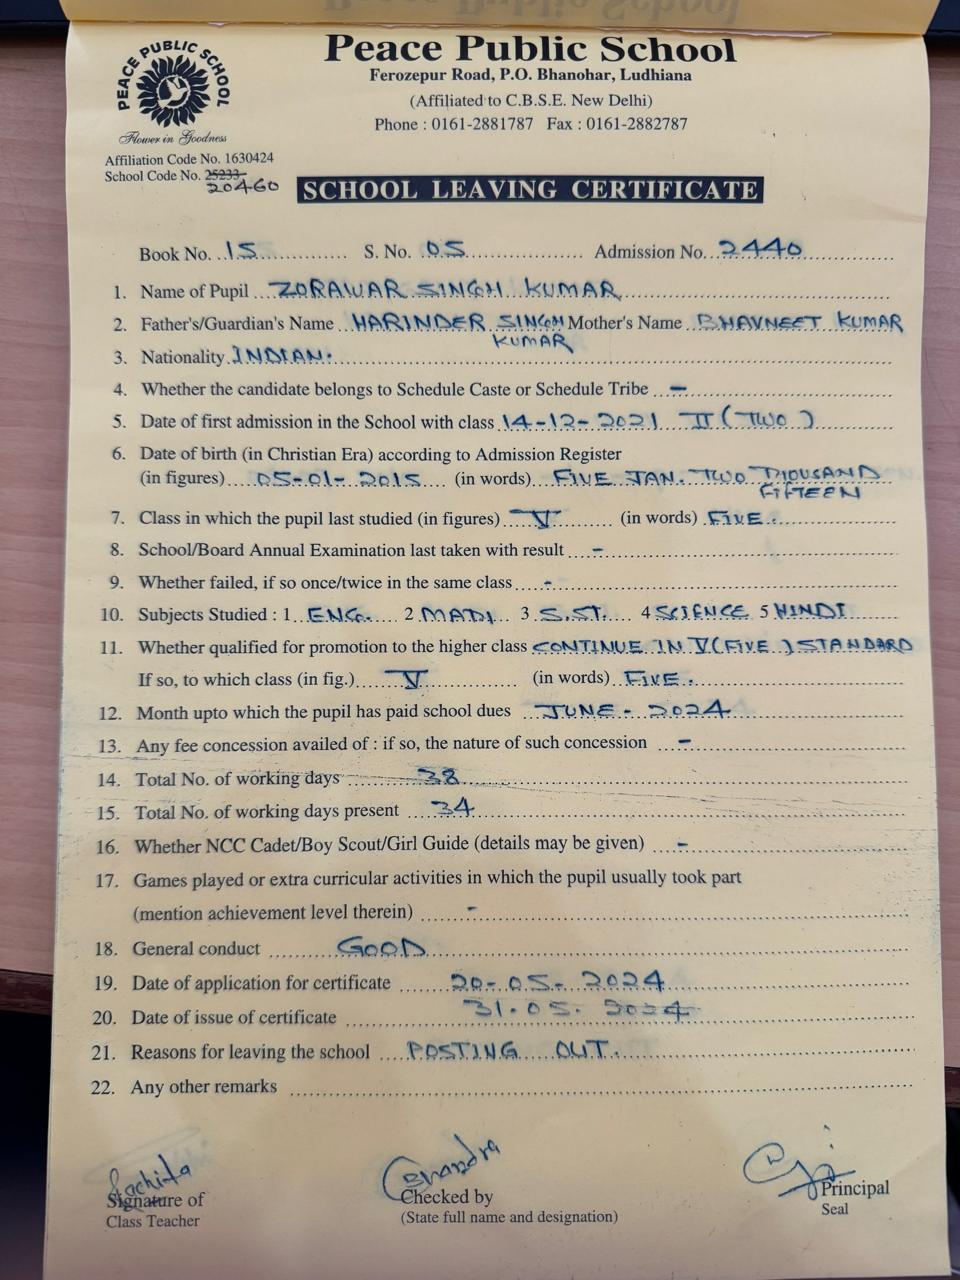 Peace Public School
PEACE PUBLIC SCHOOL
Flower in Goodness
Ferozepur Road, P.O. Bhanohar, Ludhiana
(Affiliated to C.B.S.E. New Delhi)
Phone : 0161-2881787 Fax : 0161-2882787
Affiliation Code No. 1630424
School Code No. 25233
20460
SCHOOL LEAVING CERTIFICATE
Book No. 15 S. No. 05 Admission No. 2440
1. Name of Pupil ZORAWAR SINGH KUMAR
2. Father's/Guardian's Name HARINDER SINGH Mother's Name BHAVNEET KUMAR
KUMAR
3. Nationality INDIAN.
4. Whether the candidate belongs to Schedule Caste or Schedule Tribe –
5. Date of first admission in the School with class 14-12-2021 II (TWO)
6. Date of birth (in Christian Era) according to Admission Register
(in figures) 05-01-2015 (in words) FIVE JAN. TWO THOUSAND
FIFTEEN
7. Class in which the pupil last studied (in figures) V (in words) FIVE.
8. School/Board Annual Examination last taken with result –
9. Whether failed, if so once/twice in the same class -
10. Subjects Studied : 1 ENG. 2 MATH 3 S.ST. 4 SCIENCE 5 HINDI
11. Whether qualified for promotion to the higher class CONTINUE IN V (FIVE) STANDARD
If so, to which class (in fig.) V (in words) FIVE.
12. Month upto which the pupil has paid school dues JUNE - 2024
13. Any fee concession availed of : if so, the nature of such concession –
14. Total No. of working days 38
15. Total No. of working days present 34
16. Whether NCC Cadet/Boy Scout/Girl Guide (details may be given) –
17. Games played or extra curricular activities in which the pupil usually took part
(mention achievement level therein) -
18. General conduct GOOD
19. Date of application for certificate 20-05-2024
20. Date of issue of certificate 31.05.2024
21. Reasons for leaving the school POSTING OUT.
22. Any other remarks
Signature of
Class Teacher
Checked by
(State full name and designation)
Principal
Seal